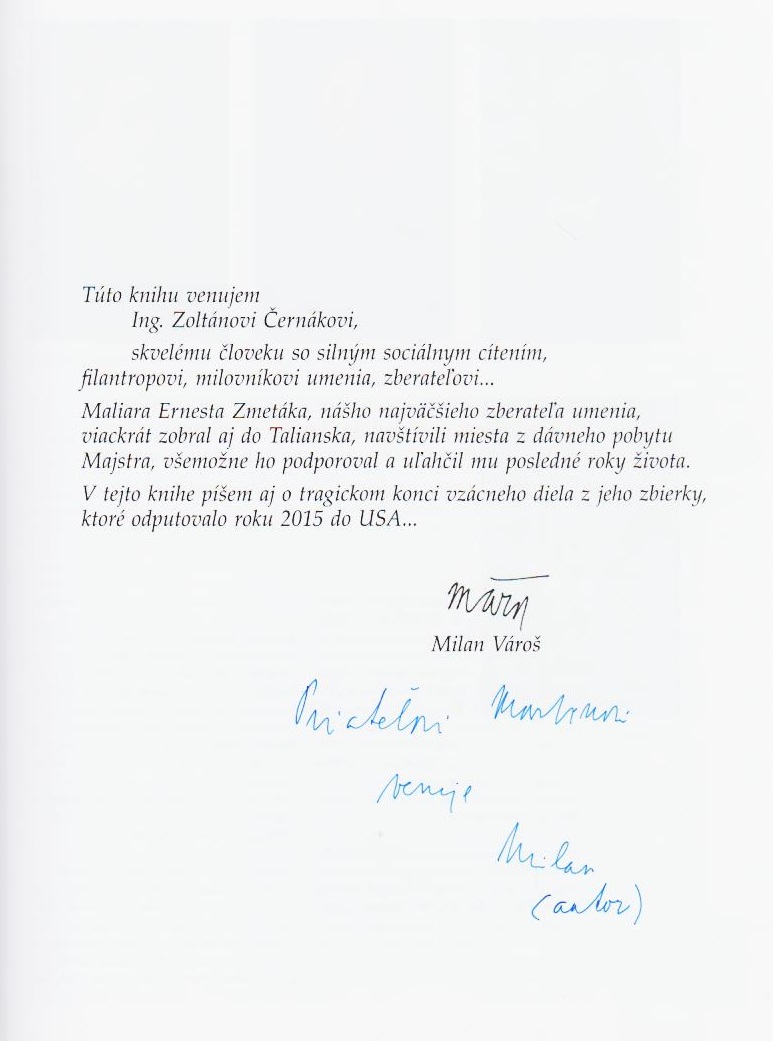 Túto knihu venujem
Ing. Zoltánovi Černákovi,
skvelému človeku so silným sociálnym cítením,
filantropovi, milovníkovi umenia, zberateľovi...
Maliara Ernesta Zmetáka, nášho najväčšieho zberateľa umenia,
viackrát zobral aj do Talianska, navštívili miesta z dávneho pobytu
Majstra, všemožne ho podporoval a uľahčil mu posledné roky života.
V tejto knihe píšem aj o tragickom konci vzácneho diela z jeho zbierky,
ktoré odputovalo roku 2015 do USA...
Milan Vároš
Priateľovi Martinovi
venuje
Milan
(autor)